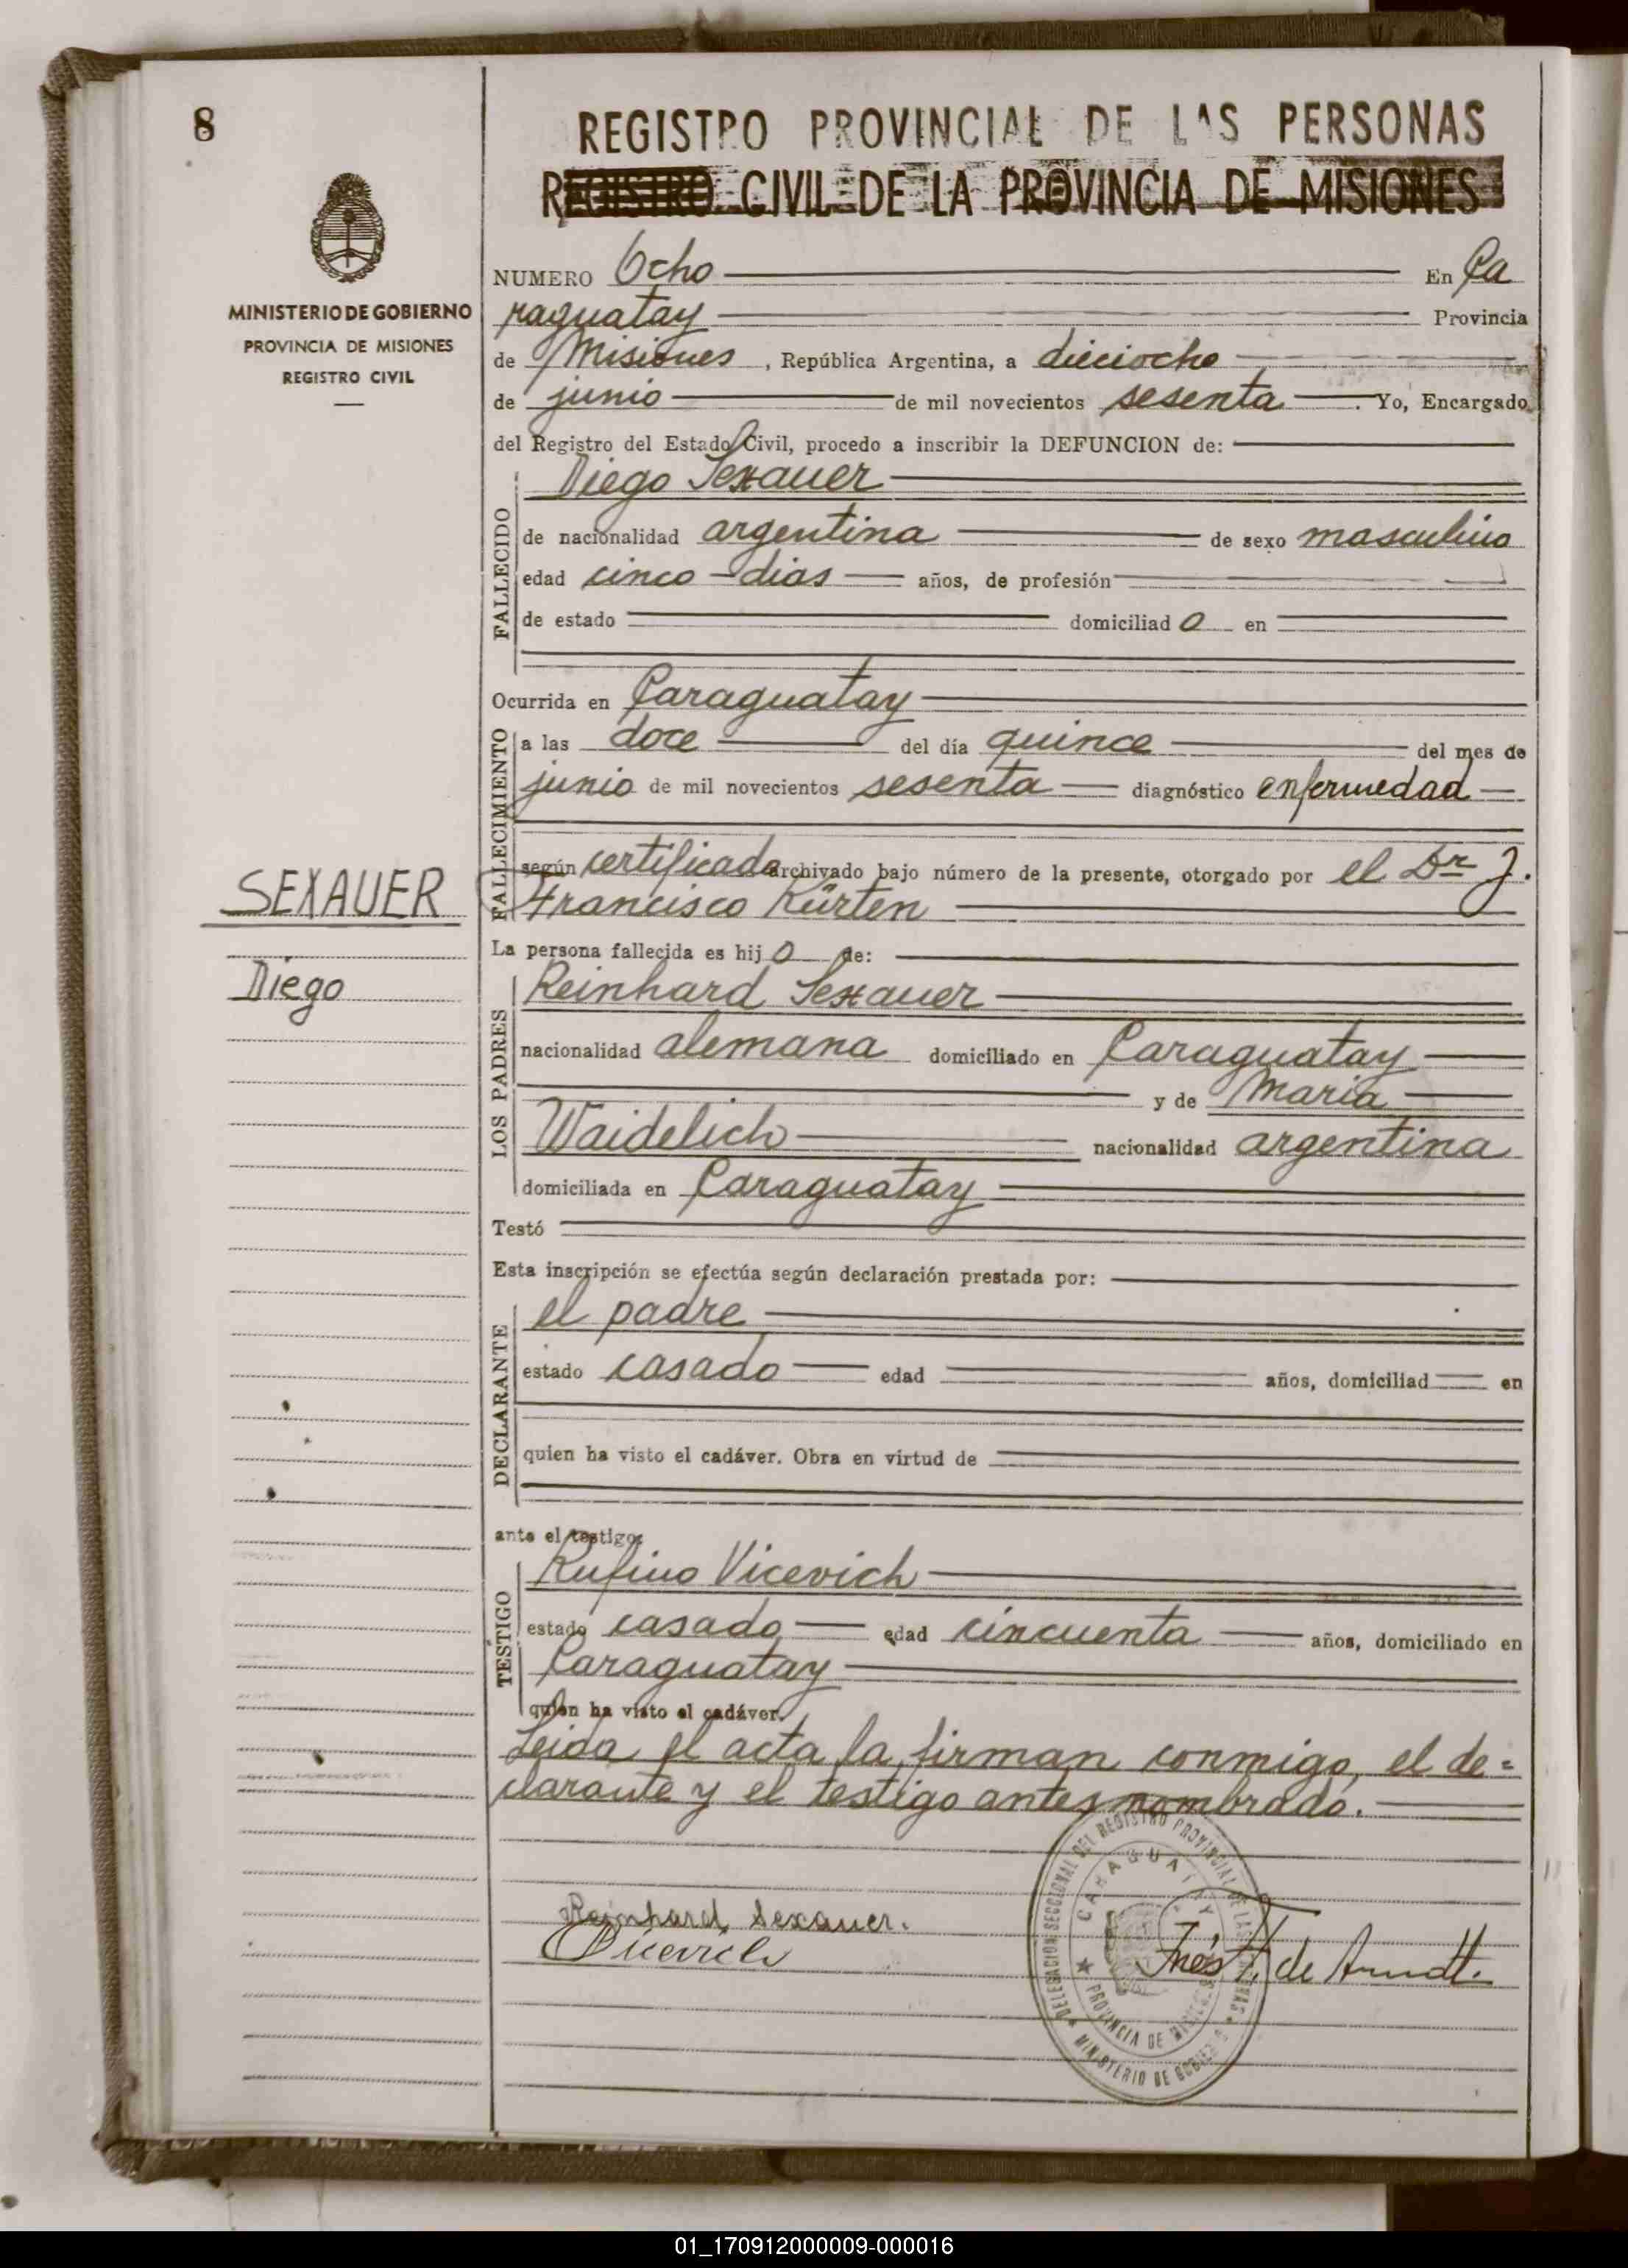 8
REGISTRO PROVINCIAL DE LAS PERSONAS
REGISTRO CIVIL DE LA PROVINCIA DE MISIONES
MINISTERIO DE GOBIERNO
PROVINCIA DE MISIONES
REGISTRO CIVIL
NUMERO Ocho En Ca
raguatay Provincia
de Misiones, República Argentina, a dieciocho
de junio de mil novecientos sesenta. Yo, Encargado
del Registro del Estado Civil, procedo a inscribir la DEFUNCION de:
FALLECIDO
Diego Sexauer
de nacionalidad argentina de sexo masculino
edad cinco dias años, de profesión
de estado domiciliado en
Ocurrida en Caraguatay
FALLECIMIENTO
a las doce del día quince del mes de
junio de mil novecientos sesenta diagnóstico enfermedad
según certificado archivado bajo número de la presente, otorgado por el Dr J.
Francisco Kürten
SEXAUER
Diego
La persona fallecida es hijo de:
LOS PADRES
Reinhard Sexauer
nacionalidad alemana domiciliado en Caraguatay
y de Maria
Waidelich nacionalidad argentina
domiciliada en Caraguatay
Testó
Esta inscripción se efectúa según declaración prestada por:
DECLARANTE
el padre
estado casado edad años, domiciliad en
quien ha visto el cadáver. Obra en virtud de
ante el testigo:
TESTIGO
Rufino Vicevich
estado casado edad cincuenta años, domiciliado en
Caraguatay
quien ha visto el cadáver.
Leida el acta la firman conmigo, el de=
clarante y el testigo antes nombrado.
DELEGACION SECCIONAL DEL REGISTRO PROVINCIAL DE LAS PERSONAS
CARAGUATAY
PROVINCIA DE MISIONES
MINISTERIO DE GOBIERNO
Reinhard Sexauer.
Vicevich
Inés T. de Arndt.
01_170912000009-000016